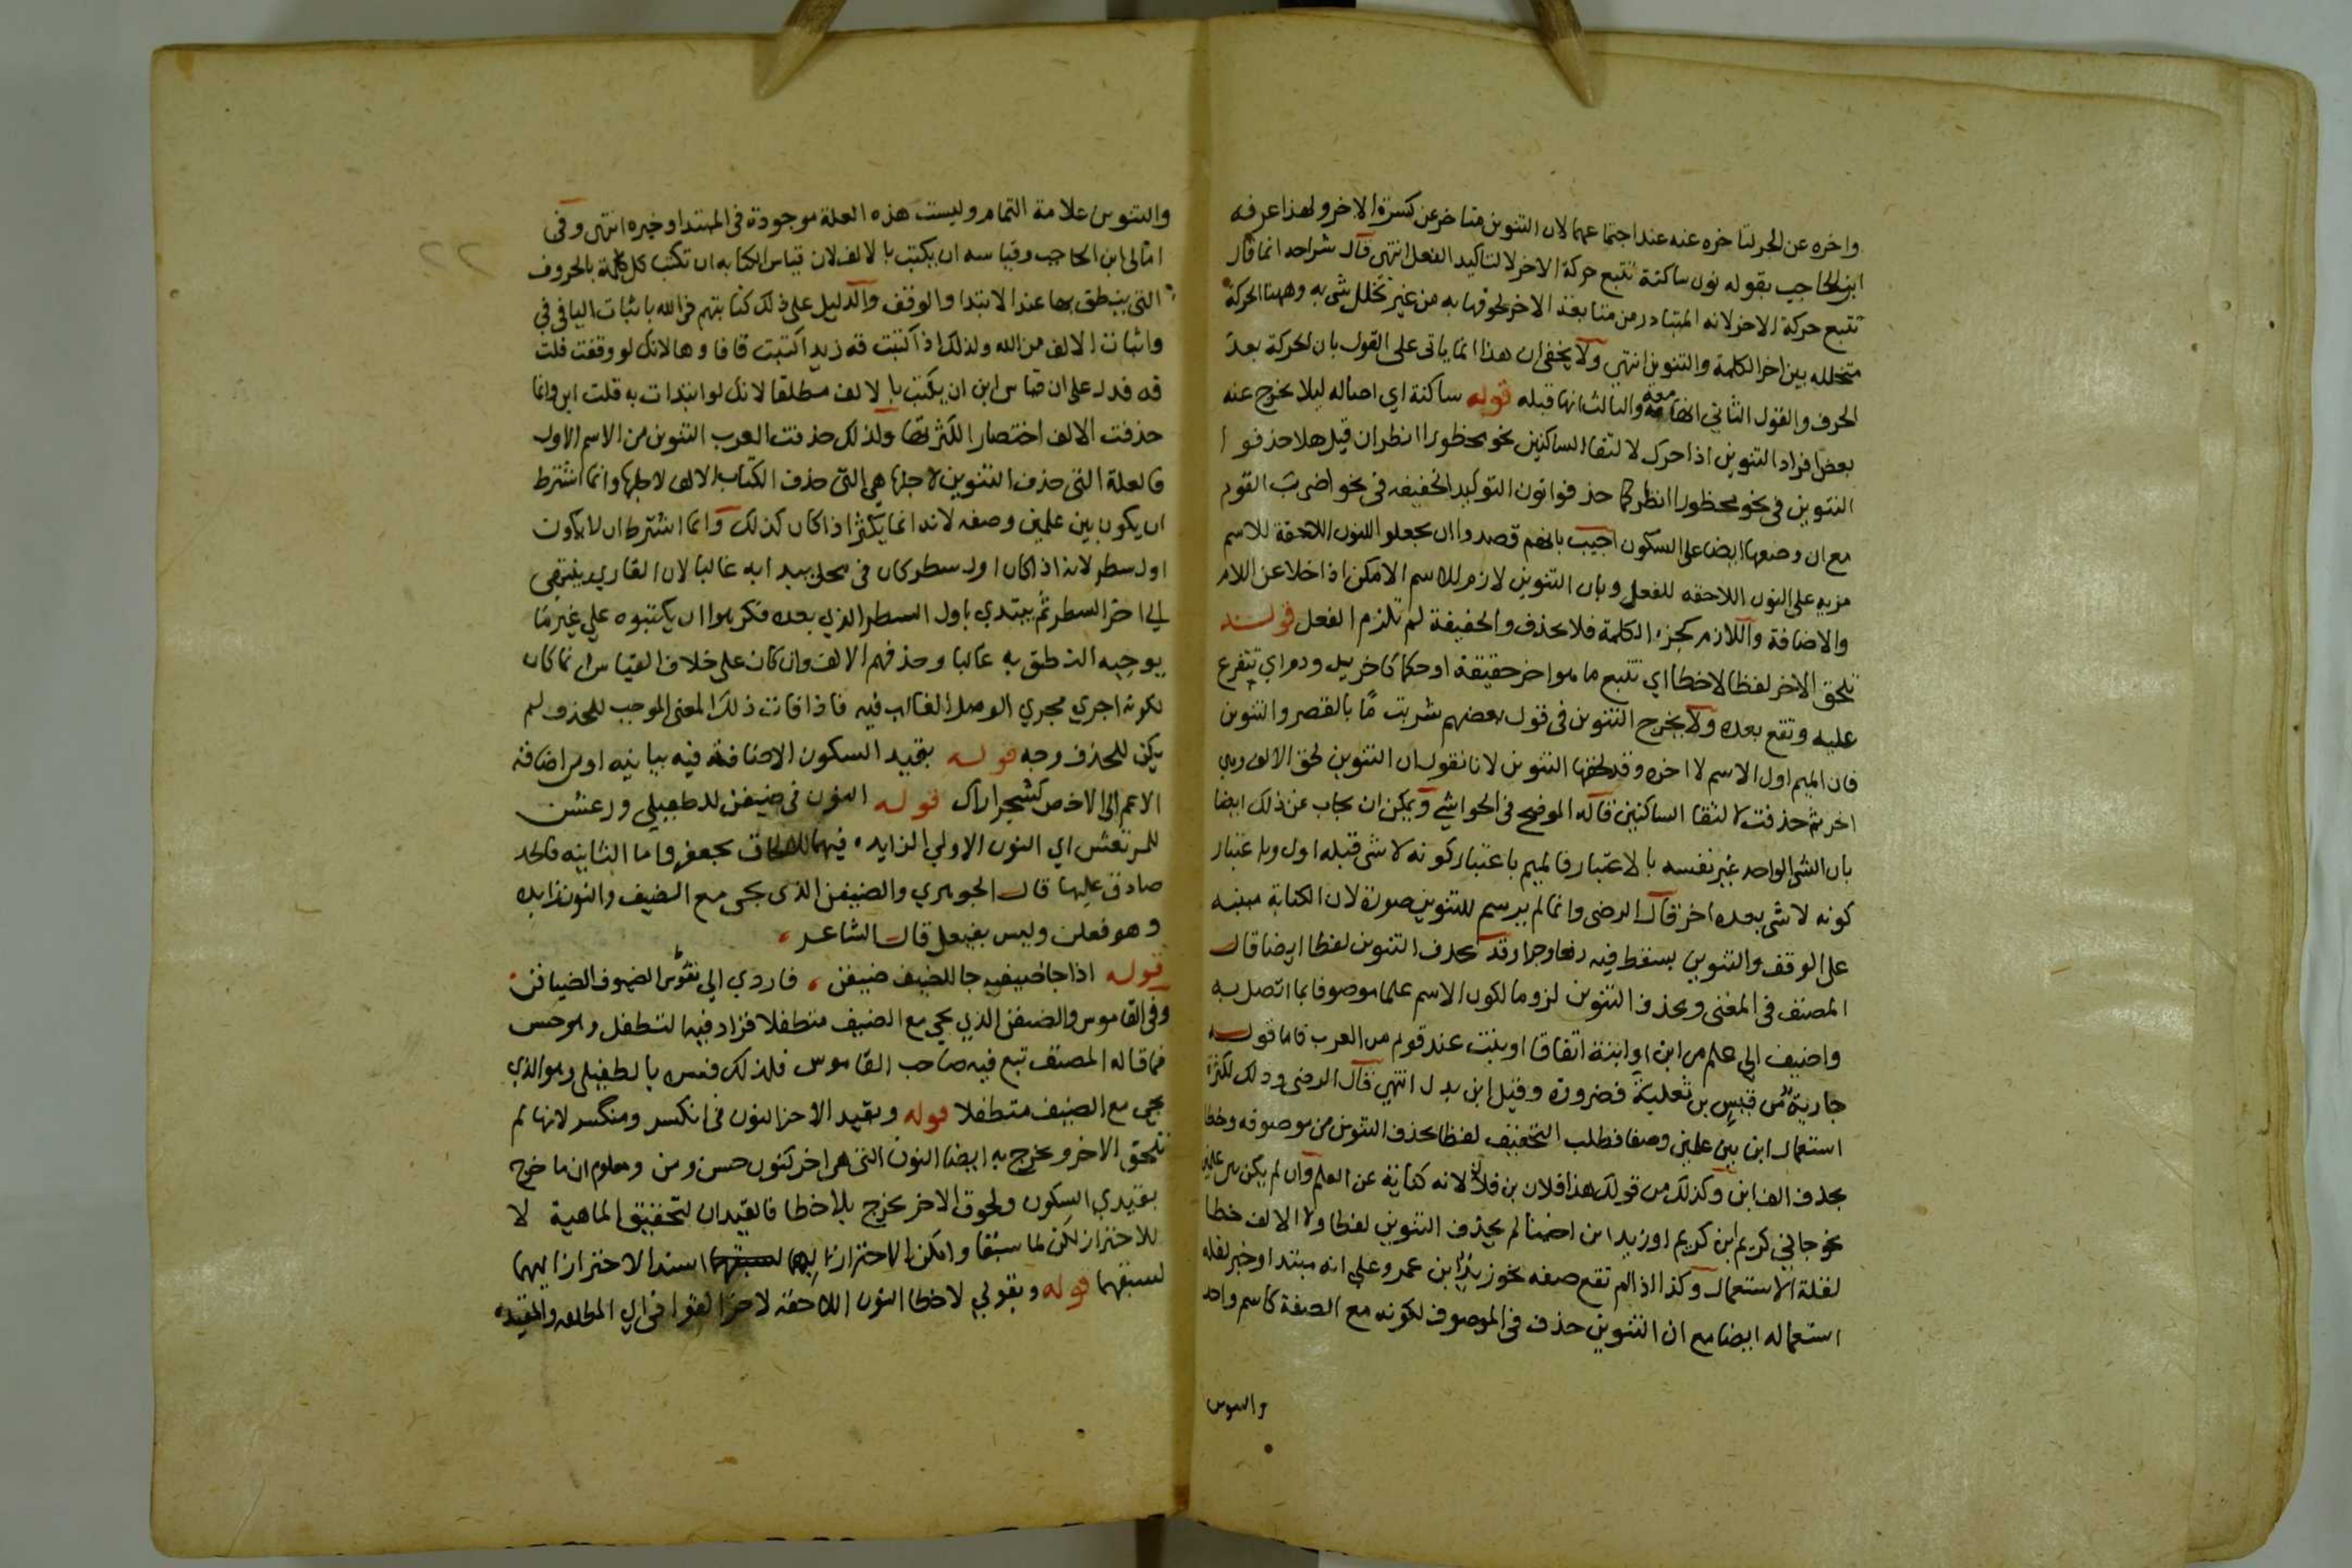 واخره عن الجر لتاخره عنه عند اجتماعهما لان التنوين متاخر عن كسرة الاخر ولهذا عرفه
ابن الحاجب بقوله نون ساكنة تتبع حركة الاخر لا لتاكيد الفعل انتهى قال شراحه انما قال
تتبع حركة الاخر لانه المتبادر من متابعة الاخر لحوقها به من غير تخلل شى به وههنا الحركة
متخللة بين اخر الكلمة والتنوين انتهى ولا يخفى ان هذا انما ياتى على القول بان الحركة بعد
الحرف والقول الثانى انها معه والثالث انها قبله قوله ساكنة اي اصاله ليلا يخرج عنه
بعض افراد التنوين اذا حرك لالتقا الساكنين نحو محظورا انظر ان قيل هلا حذفوا
التنوين فى نحو محظورا انظر كما حذفوا نون التوكيد الخفيفه فى نحو اضرب القوم
مع ان وضعها ايضا على السكون اجيب بانهم قصدوا ان يجعلوا للنون اللاحقة للاسم
مزيه على النون اللاحقه للفعل وبان التنوين لازم للاسم الامكن اذا خلا عن اللام
والاضافة واللازم كجزء الكلمة فلا يحذف والخفيفة لم تلزم الفعل قوله
تلحق الاخر لفظا لا خطا اي تتبع ما هو اخر حقيقة او حكما كاخر يد ودم اي تتفرع
عليه وتقع بعده ولا يخرج التنوين فى قول بعضهم شربت مًا بالقصر والتنوين
فان الميم اول الاسم لا اخره وقد لحقها التنوين لانا نقول ان التنوين لحق الالف وهي
اخر ثم حذفت لالتقا الساكنين قاله الموضح فى الحواشي ويمكن ان يجاب عن ذلك ايضا
بان الشى الواحد غير نفسه بالاعتبار فالميم باعتبار كونه لا شى قبله اول وباعتبار
كونه لا شى بعده اخر قال الرضى وانما لم يرسم للتنوين صورة لان الكتابة مبنيه
على الوقف والتنوين يسقط فيه رفعا وجرا وقد يحذف التنوين لفظا ايضا قال
المصنف فى المغنى ويحذف التنوين لزوما لكون الاسم علما موصوفا بما اتصل به
واضيف الى علم من ابن او ابنة اتفاقا او بنت عند قوم من العرب فاما قوله
جارية من قيس بن ثعلبة فضرورة وقيل ابن بدل انتهى قال الرضى وذلك لكثرة
استعمال ابن بين علمين وصفا فطلب التخفيف لفظا بحذف التنوين من موصوفه وخطا
بحذف الف ابن وكذلك من قولك هذا فلان بن فلان لانه كناية عن العلم وان لم يكن بين علمين
نحو جانى كريم ابن كريم او زيد ابن اخينا لم يحذف التنوين لفظا ولا الالف خطا
لقلة الاستعمال وكذا اذا لم تقع صفه نحو زيد ابن عمرو على انه مبتدا وخبر لقله
استعماله ايضا مع ان التنوين حذف فى الموصوف لكونه مع الصفة كاسم واحد
والتنوين
والتنوين علامة التمام وليست هذه العلة موجودة فى المبتدا وخبره انتهى وفى
امالى ابن الحاجب وقياسه ان يكتب بالالف لان قياس الكتابه ان تكتب كل كلمة بالحروف
التى ينطق بها عند الابتدا والوقف والدليل على ذلك كتابتهم من الله باثبات اليا فى فى
واثبات الالف من الله ولذلك اذا كتبت قه زيدا كتبت قافا وها لانك لو وقفت قلت
قه فدل على ان قياس ابن ان يكتب بالالف مطلقا لانك لو ابتدات به قلت ابن وانما
حذفت الالف اختصارا لكثرتها ولذلك حذفت العرب التنوين من الاسم الاول
فالعلة التى حذف التنوين لاجلها هي التى حذف الكتاب الالف لاجلها وانما اشترط
ان يكون بين علمين وصفه لانه انما يكثر اذا كان كذلك وانما اشترط ان لا يكون
اول سطر لانه اذا كان اول سطر كان فى محل يبدا به غالبا لان القاري ينتهى
الى اخر السطر ثم يبتدي باول السطر الذي بعده فكرهوا ان يكتبوه علي غير ما
يوجبه النطق به غالبا وحذفهم الالف وان كان على خلاف القياس انما كان
لكونه اجري مجري الوصل الغالب فيه فاذا فات ذلك المعنى الموجب للحذف لم
يكن للحذف وجه قوله بقيد السكون الاضافة فيه بيانيه او من اضافة
الاعم الى الاخص كشجر اراك قوله النون فى ضيفن للطفيلي ورعشن
للمرتعش اي النون الاولي الزايده فيهما للالحاق بجعفر واما الثانيه فالحد
صادق عليها قال الجوهري والضيفن الذى يجى مع الضيف والنون زايده
وهو فعلن وليس بفيعل قال الشاعر
قوله اذا جا ضيف جا للضيف ضيفن فاودي الى نقوس الضيوف الضيافن
وفى القاموس والضيفن الذي يجي مع الضيف متطفلا فزاد فيه التطفل وهو حسن
فما قاله المصنف تبع فيه صاحب القاموس فلذلك فسره بالطفيلى وهو الذي
يجى مع الضيف متطفلا قوله وبقيد الاخر النون فى انكسر ومنكسر لانها لم
تلحق الاخر ويخرج به ايضا النون التى هى اخر كنون حسن ومن ومعلوم ان ما خرج
بقيدي السكون ولحوق الاخر يخرج بلا خطا فالقيدان لتحقيق الماهية لا
للاحتراز لكن لما سبقا وامكن الاحتراز بهما اسند الاحتراز اليهما
لسبقهما قوله وبقولي لا خطا النون اللاحقه لاخر القوافى اي المطلقه والمقيده